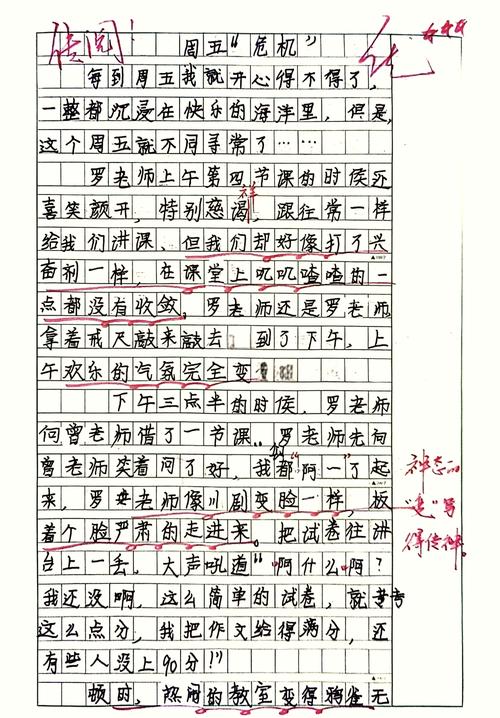 佳阅
优
周五“危机”
每到周五我就开心得不得了，
一整都沉浸在快乐的海洋里，但是，
这个周五就不同寻常了……
罗老师上午第四节课的时侯还
祥
喜笑颜开，特别慈渴，跟往常一样
给我们讲课、但我们却好像打了兴
奋剂一样，在课堂上叽叽喳喳的一
点都没有收敛。罗老师还是罗老师
拿着戒尺敲来敲去　到了下午，上
午欢乐的气氛完全变
下午三点半的时侯，罗老师
向曾老师借了一节课。罗老师先向
曾老师笑着问了好，我都“阿一了起
来，罗老师像川剧变脸一样，板
着个脸严肃的走进来。把试卷往讲
台上一丢，大声吼道“啊什么啊？
我还没啊，这么简单的试卷，就考
这么点分，我把作文给得满分，还
有些人没上90分！”
顿时，热闹的教室变得鸦雀无
神态的
“变”写
得传神。